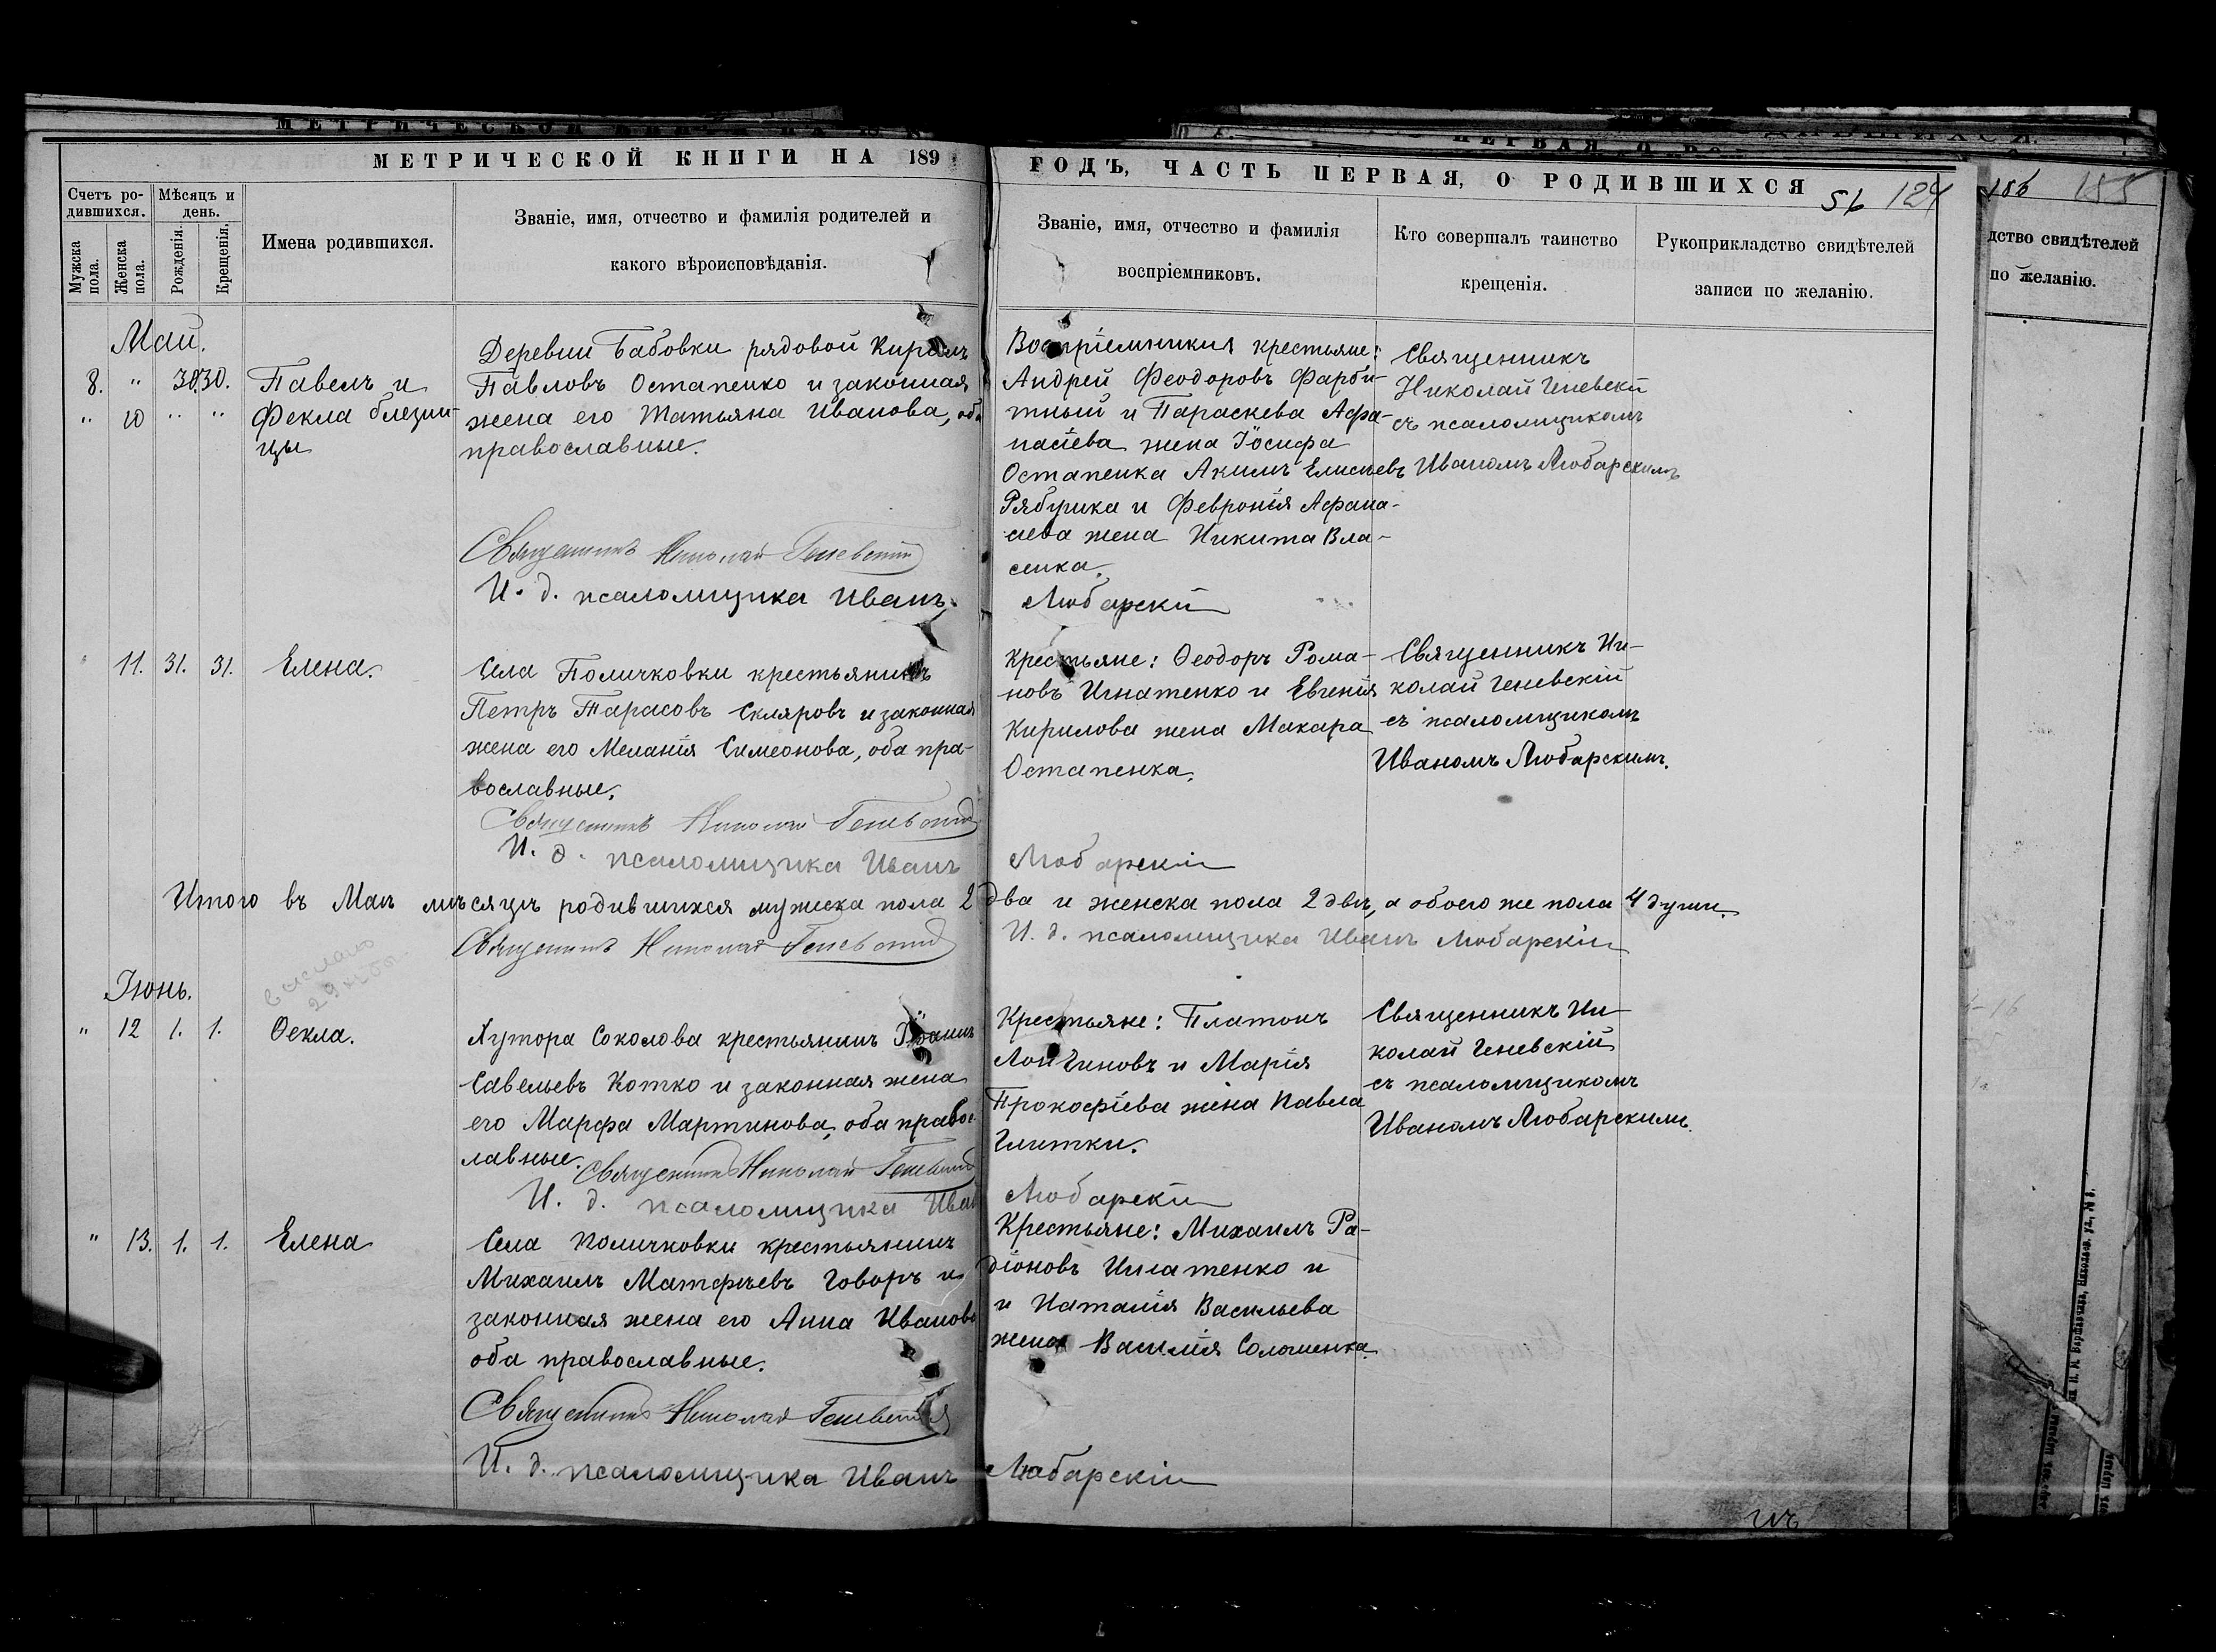 МЕТРИЧЕСКОЙ КНИГИ НА 189
ГОДЪ, ЧАСТЬ ПЕРВАЯ, О РОДИВШИХСЯ
56 124
186 185
Счетъ ро-
дившихся.
Мѣсяцъ и
день.
Мужска
пола.
Женска
пола.
Рожденія.
Крещенія.
Имена родившихся.
Званіе, имя, отчество и фамилія родителей и
какого вѣроисповѣданія.
Званіе, имя, отчество и фамилія
воспріемниковъ.
Кто совершалъ таинство
крещенія.
Рукоприкладство свидѣтелей
записи по желанію.
дство свидѣтелей
по желанію.
Май.
8. " 30. 30. Павелъ и
" 10 " " Фекла близни-
цы
Деревни Бабовки рядовой Кирилъ
Павловъ Остапенко и законная
жена его Татьяна Иванова, оба
православные.
Священникъ Николай Геневскій
И. д. псаломщика Иванъ
Воспріемники крестьяне:
Андрей Феодоровъ Фарби-
тный и Параскева Афа-
насіева жена Іосифа
Остапенка Акимъ Елисиевъ
Рябушка и Февронія Афана-
сиева жена Никита Вла-
сенка.
Любарскій
Священникъ
Николай Геневскій
съ псаломщикомъ
Иваномъ Любарскимъ
" 11. 31. 31. Елена.
Села Поличковки крестьянинъ
Петръ Тарасовъ Скляровъ и законная
жена его Меланія Симеонова, оба пра-
вославные.
Священникъ Николай Геневскій
И. д. псаломщика Иванъ
Крестьяне: Ѳеодоръ Рома-
новъ Игнатенко и Евгенія
Кирилова жена Макара
Остапенка.
Любарскій
Священникъ Ни-
колай Геневскій
съ псаломщикомъ
Иваномъ Любарскимъ.
Итого въ Маѣ мѣсяцѣ родившихся мужска пола 2 два и женска пола 2 двѣ, а обоего же пола 4 души.
Священникъ Николай Геневскій
И. д. псаломщика Иванъ Любарскій
Іюнь.
" 12 1. 1. Ѳекла.
Хутора Соколова крестьянинъ Іоаннъ
Савельевъ Котко и законная жена
его Марфа Мартинова, оба правос-
лавные.
Священникъ Николай Геневскій
И. д. псаломщика Иванъ
Крестьяне: Платонъ
Лонгиновъ и Марія
Прокофіева жена Павла
Глитки.
Любарскій
Священникъ Ни-
колай Геневскій
съ псаломщикомъ
Иваномъ Любарскимъ.
" 13. 1. 1. Елена
Села Поличковки крестьянинъ
Михаилъ Матфѣевъ Говоръ и
законная жена его Анна Иванова
оба православные.
Священникъ Николай Геневскій
И. д. псаломщика Иванъ
Крестьяне: Михаилъ Ра-
діоновъ Игнатенко и
и Наталія Васильева
жена Василія Соломенка.
Любарскій